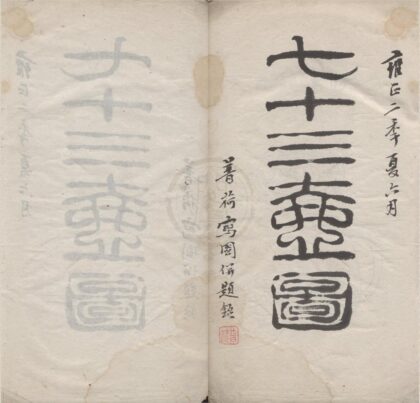 雍正二年夏六月
七十三壺圖
寫圖併題